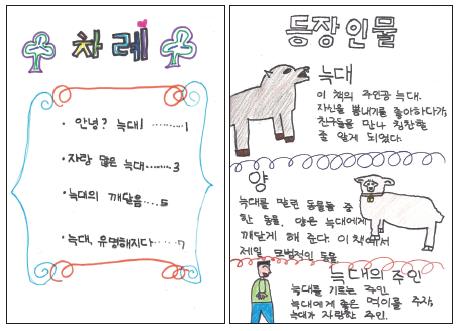 차례
· 안녕? 늑대! ........1
· 자랑 많은 늑대......3
· 늑대의 깨달음....5
· 늑대, 유명해지다....7
등장인물
늑대
이 책의 주인공 늑대.
자신을 뽐내기를 좋아하다가,
친구들을 만나 칭찬할
줄 알게 되었다.
양
늑대를 말린 동물들 중
한 동물. 양은 늑대에게
깨닫게 해 준다. 이 책에서
제일 모범적인 동물.
늑대의 주인
늑대를 기르는 주인.
늑대에게 좋은 먹이를 주자,
늑대가 자랑한 주인.